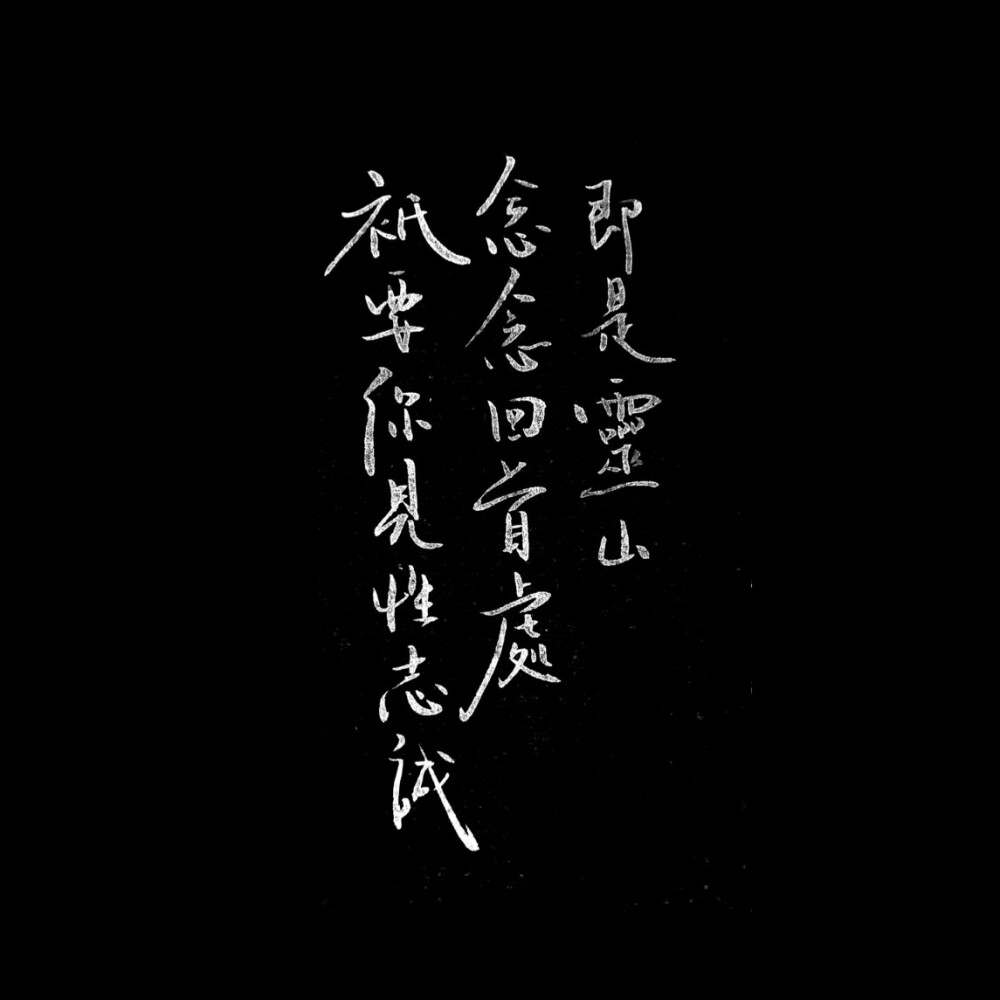 祇要你見性志誠
念念回首處
即是靈山